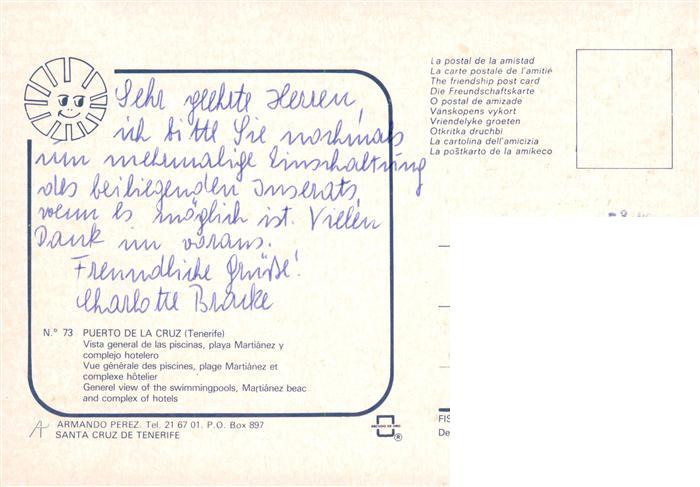 Sehr geehrte Herren,
ich bitte Sie nochmals
um mehrmalige Einschaltung
des beiliegenden Inserats,
wenn es möglich ist. Vielen
Dank im voraus.
Freundliche Grüße!
Charlotte Bracke
N.º 73 PUERTO DE LA CRUZ (Tenerife)
Vista general de las piscinas, playa Martiánez y
complejo hotelero
Vue générale des piscines, plage Martiánez et
complexe hôtelier
Generel view of the swimmingpools, Martiánez beac
and complex of hotels
ARMANDO PEREZ. Tel. 21 67 01. P.O. Box 897
SANTA CRUZ DE TENERIFE
®
La postal de la amistad
La carte postale de l'amitié
The friendship post card
Die Freundschaftskarte
O postal de amizade
Vänskopens vykort
Vriendelyke groeten
Otkritka druchbi
La cartolina dell'amicizia
La poŝtkarto de la amikeco
FIS
De